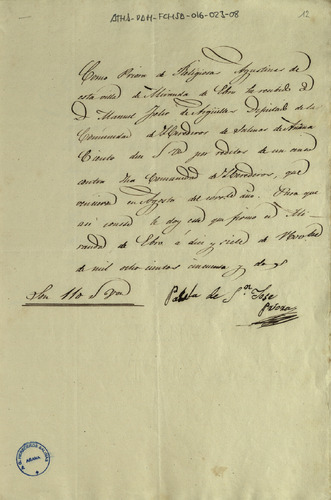 ATHA-DAH-FCHSA-016-023-08
12
Como Priora de Religiosas Agustinas de
esta villa de Miranda de Ebro he recibido de
D. Manuel Julio de Argüelles Diputado de la
Comunidad de Herederos de Salinas de Añana
Ciento diez r.s v.n por reditos de un censo
contra dha Comunidad de Herederos, que
vencieron en Agosto del corrte año. Para que
asi conste le doy este que firmo en Mi-
randa de Ebro á diez y siete de Novbre
de mil ocho cientos cincuenta y dos
Son 110 r.s v.n
de S.n Jose
Priora
AÑANA